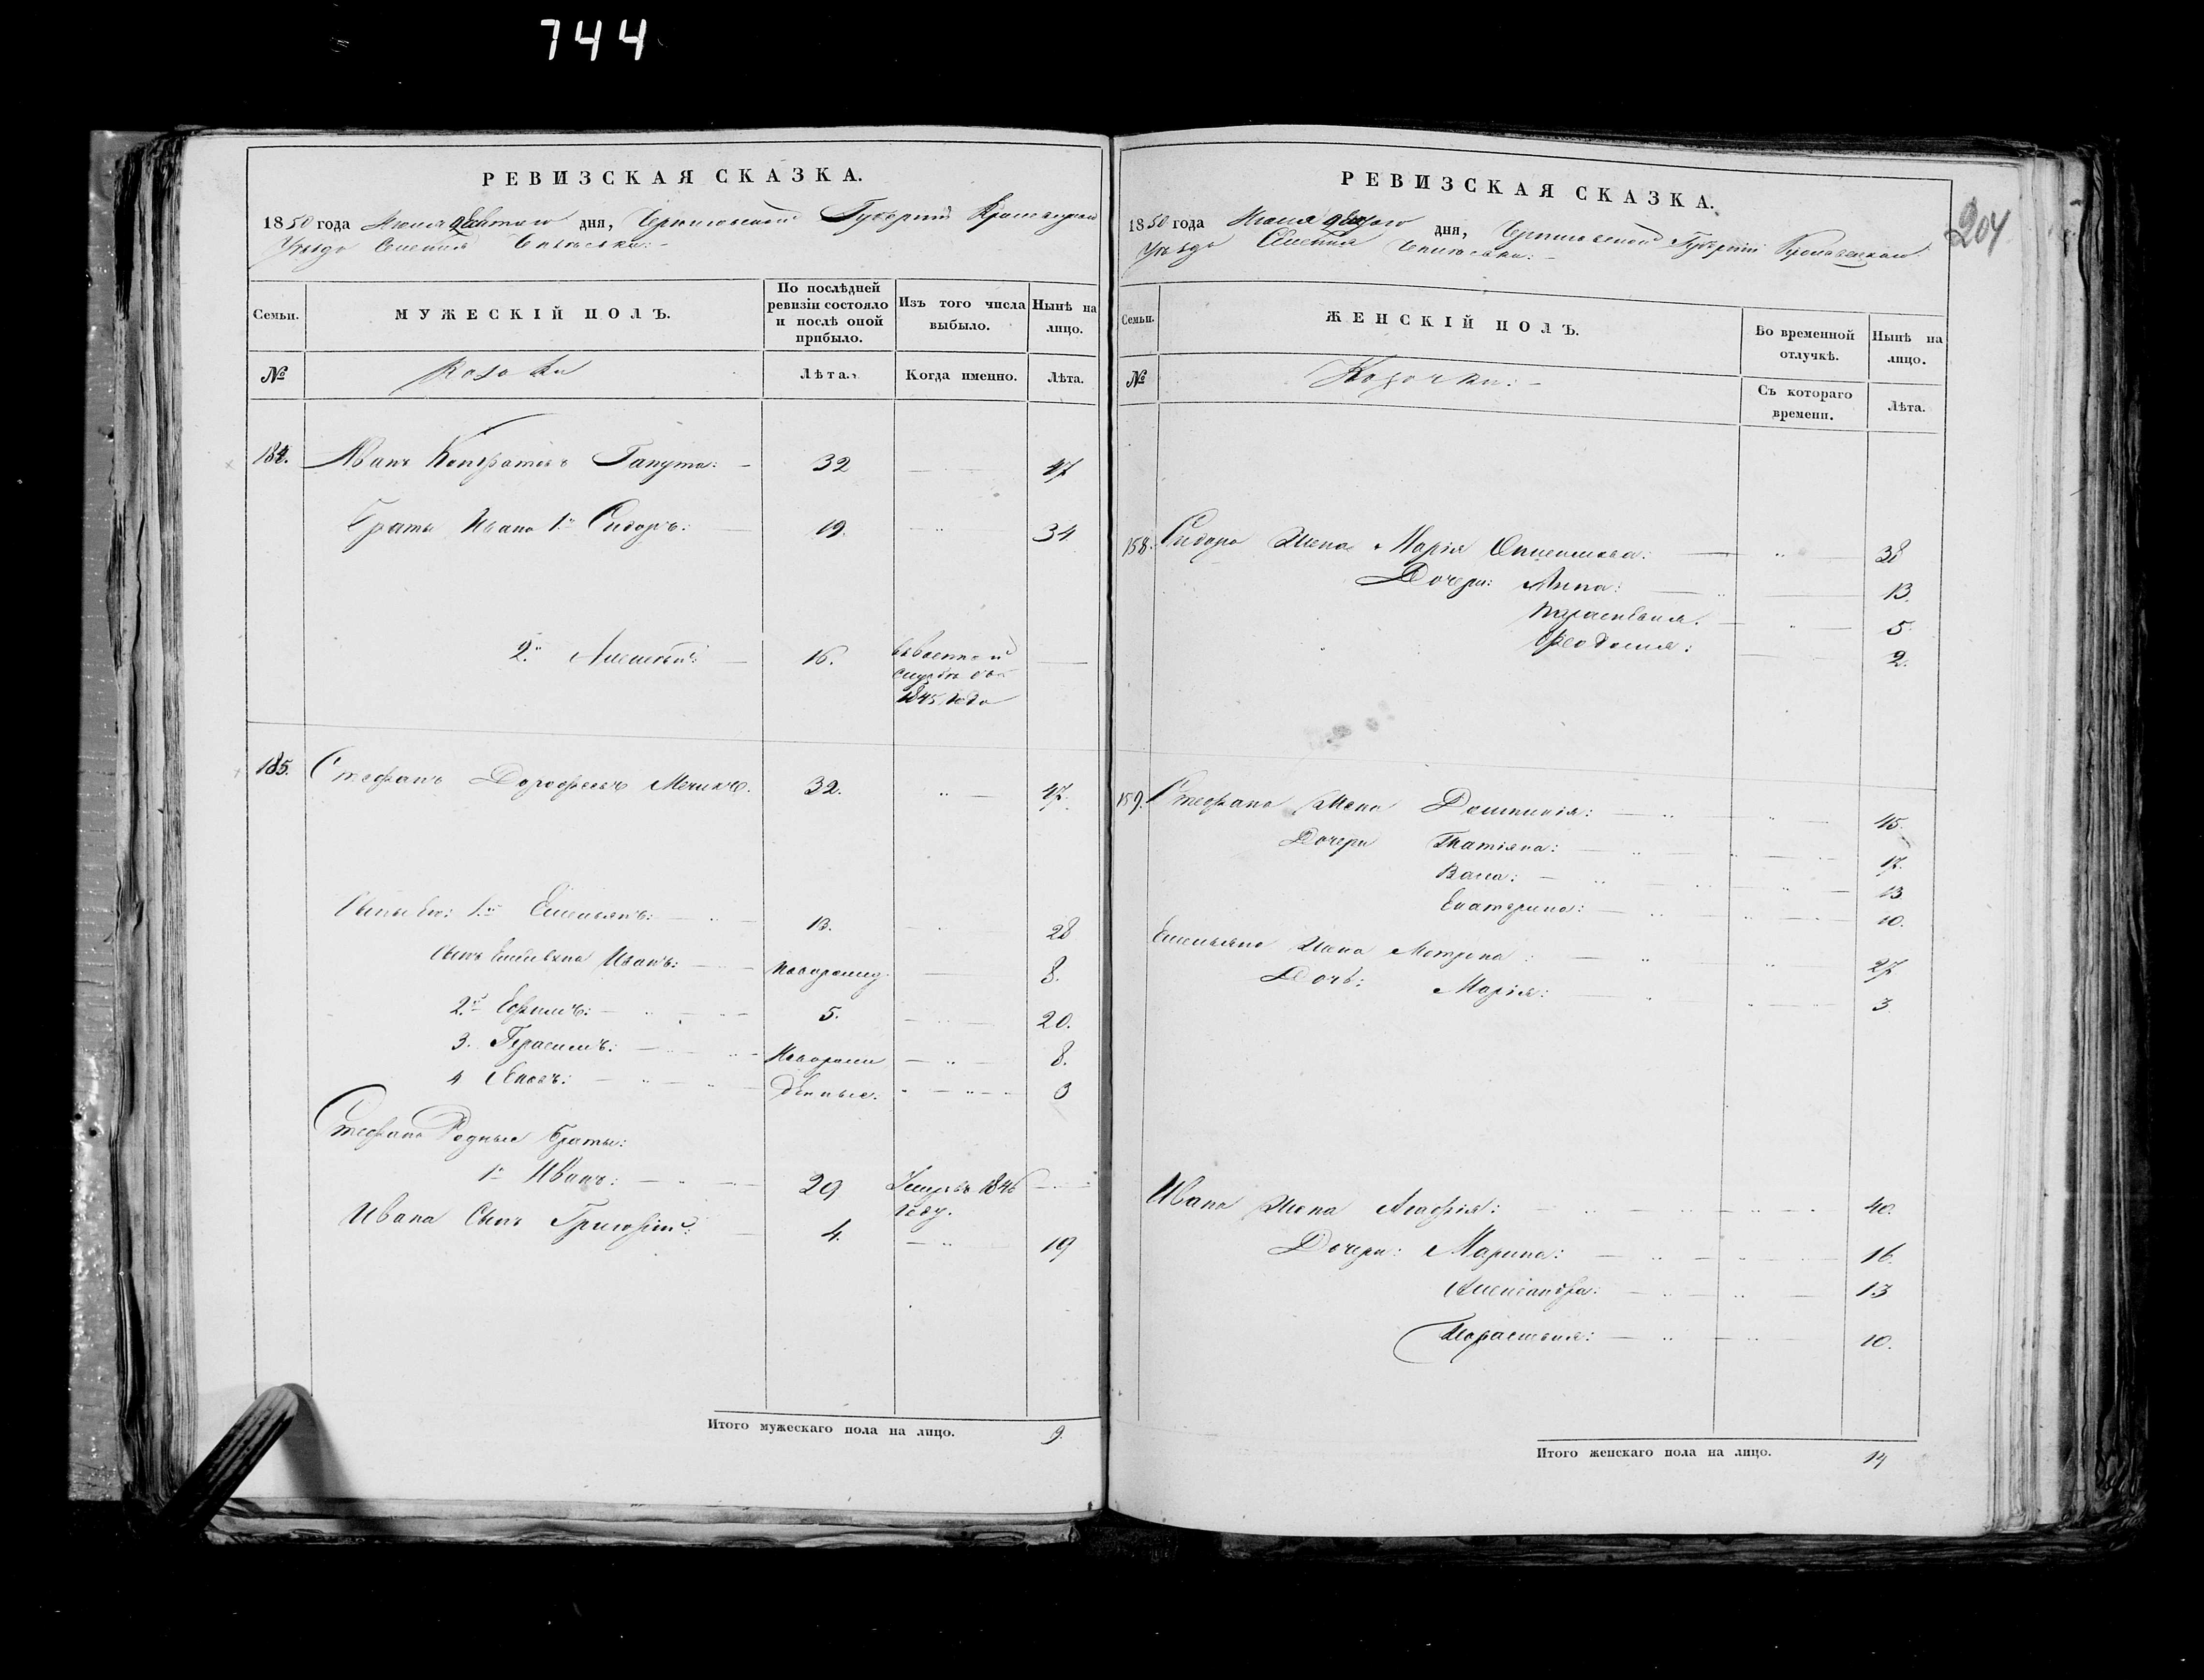 744
РЕВИЗСКАЯ СКАЗКА.
1850 года Июня дня, Черниговской Губерніи Кролевецкаго
Уѣзда Селенія
Семьи. МУЖЕСКІЙ ПОЛЪ. По послѣдней ревизіи состояло и послѣ оной прибыло. Изъ того числа выбыло. Нынѣ на лицо.
№ Козаки Лѣта. Когда именно. Лѣта.
184. Иванъ Кондратовъ Гапута: 32 47
Братья Ивана 1й Сидоръ: 19. 34
2й Алексѣй: 16. въ военной службѣ съ 1845 года
185. Стефанъ Дорофеевъ Мечикъ. 32. 47.
Сыны Его: 1й Емельянъ: 13. 28
Сынъ Емельяна Иванъ: новорожд. 8.
2й Ефимъ: 5. 20.
3. Герасимъ: Новорож 8.
4 денные. 3
Стефана Родные Братья:
1й Иванъ: 29 Умеръ въ 1846 году.
Ивана Сынъ Григорій: 4. 19
Итого мужескаго пола на лицо. 9.
РЕВИЗСКАЯ СКАЗКА.
204
1850 года Июня дня, Черниговской Губерніи Кролевецкаго
Уѣзда Селенія
Семьи. ЖЕНСКІЙ ПОЛЪ. Во временной отлучкѣ. Нынѣ на лицо.
№ Козачки: Съ котораго времени. Лѣта.
158. Сидора Жена Марія 38
Дочери: Анна: 13.
Парасковія. 5.
Феодосия: 2.
159. Стефана Жена Домникія: 45.
Дочери Татіяна: 17.
Васса: 13
Екатерина: 10.
Емельяна Жена Мотрона: 27
Дочь: Марія: 3
Ивана Жена Агафія: 40.
Дочери: Марина: 16.
Александра: 13
Парасковия: 10.
Итого женскаго пола на лицо. 14